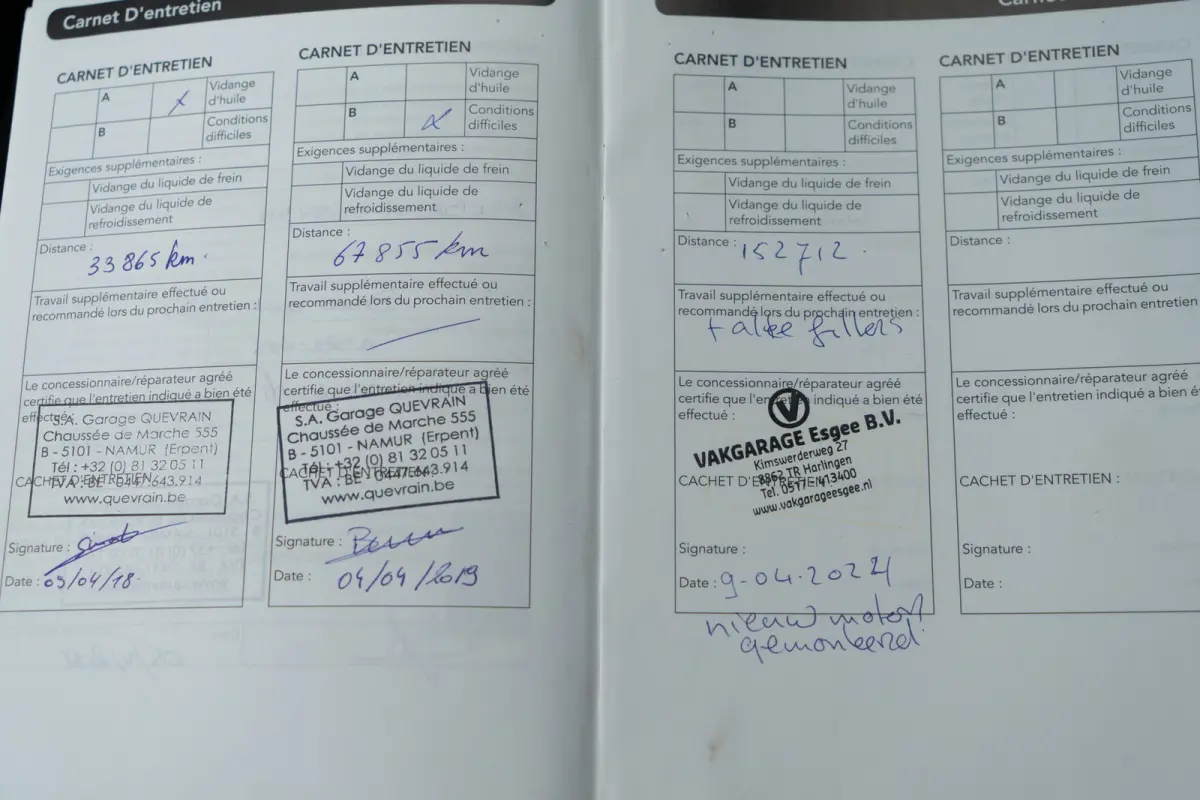 Carnet D'entretien
CARNET D'ENTRETIEN
A
x
Vidange
d'huile
B
Conditions
difficiles
Exigences supplémentaires :
Vidange du liquide de frein
Vidange du liquide de
refroidissement
Distance :
33 865 km.
Travail supplémentaire effectué ou
recommandé lors du prochain entretien :
Le concessionnaire/réparateur agréé
certifie que l'entretien indiqué a bien été
effectué :
S.A. Garage QUEVRAIN
Chaussée de Marche 555
B - 5101 - NAMUR (Erpent)
Tél : +32 (0) 81 32 05 11
CACHET D'ENTRETIEN
TVA : BE 0447.643.914
www.quevrain.be
Signature :
Date : 03/04/18
CARNET D'ENTRETIEN
A
Vidange
d'huile
B
x
Conditions
difficiles
Exigences supplémentaires :
Vidange du liquide de frein
Vidange du liquide de
refroidissement
Distance :
67 855 km
Travail supplémentaire effectué ou
recommandé lors du prochain entretien :
Le concessionnaire/réparateur agréé
certifie que l'entretien indiqué a bien été
effectué :
S.A. Garage QUEVRAIN
Chaussée de Marche 555
B - 5101 - NAMUR (Erpent)
Tél : +32 (0) 81 32 05 11
CACHET D'ENTRETIEN
TVA : BE - 0447.643.914
www.quevrain.be
Signature :
Date : 04/04/2019
CARNET D'ENTRETIEN
A
Vidange
d'huile
B
Conditions
difficiles
Exigences supplémentaires :
Vidange du liquide de frein
Vidange du liquide de
refroidissement
Distance : 152712.
Travail supplémentaire effectué ou
recommandé lors du prochain entretien :
+ alle filters
Le concessionnaire/réparateur agréé
certifie que l'entretien indiqué a bien été
effectué :
V
VAKGARAGE Esgee B.V.
Kimswerderweg 27
8862 TR Harlingen
CACHET D'ENTRETIEN :
Tel. 0517-413400
www.vakgarageesgee.nl
Signature :
Date : 9-04-2024
nieuw motor
gemonteerd.
CARNET D'ENTRETIEN
A
Vidange
d'huile
B
Conditions
difficiles
Exigences supplémentaires :
Vidange du liquide de frein
Vidange du liquide de
refroidissement
Distance :
Travail supplémentaire effectué ou
recommandé lors du prochain entretien
Le concessionnaire/réparateur agréé
certifie que l'entretien indiqué a bien é
effectué :
CACHET D'ENTRETIEN :
Signature :
Date :